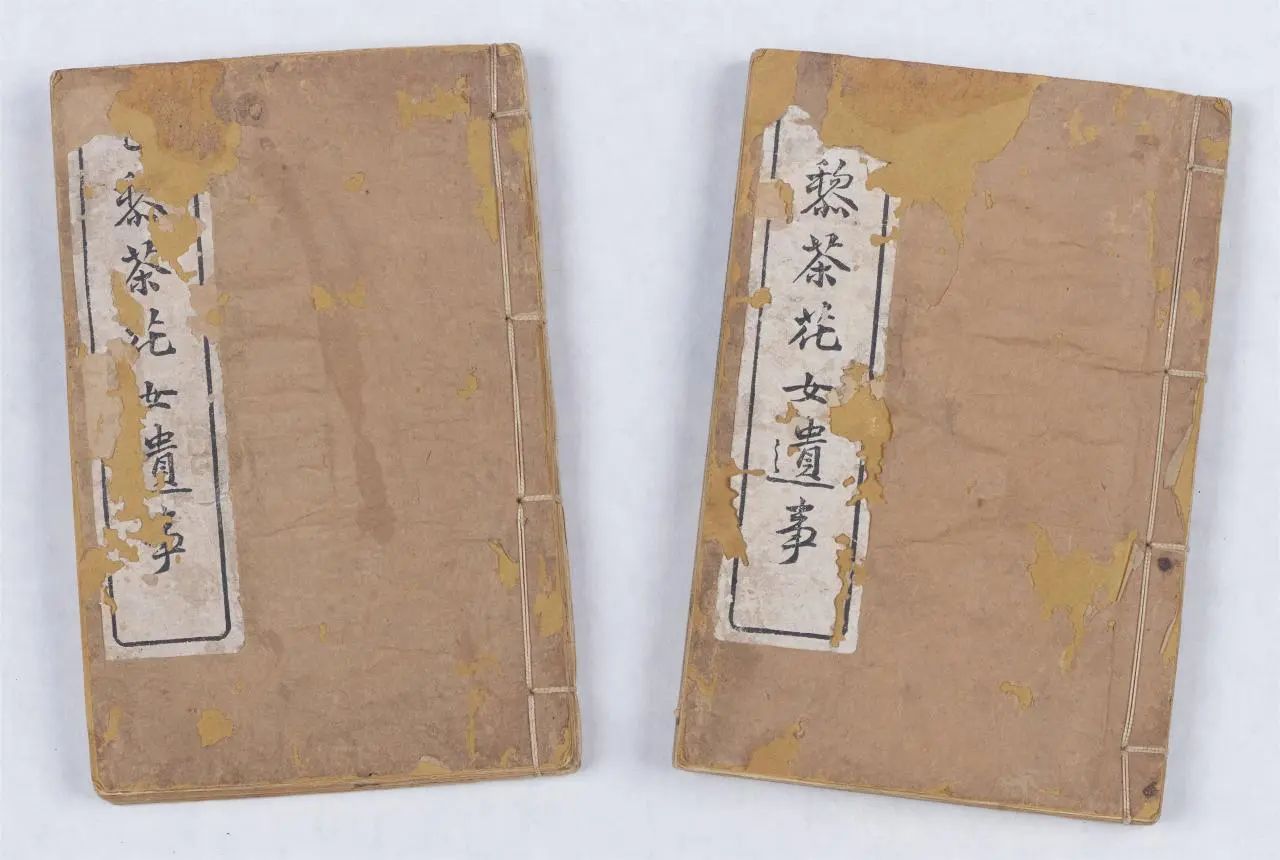 黎茶花女遺事
黎茶花女遺事